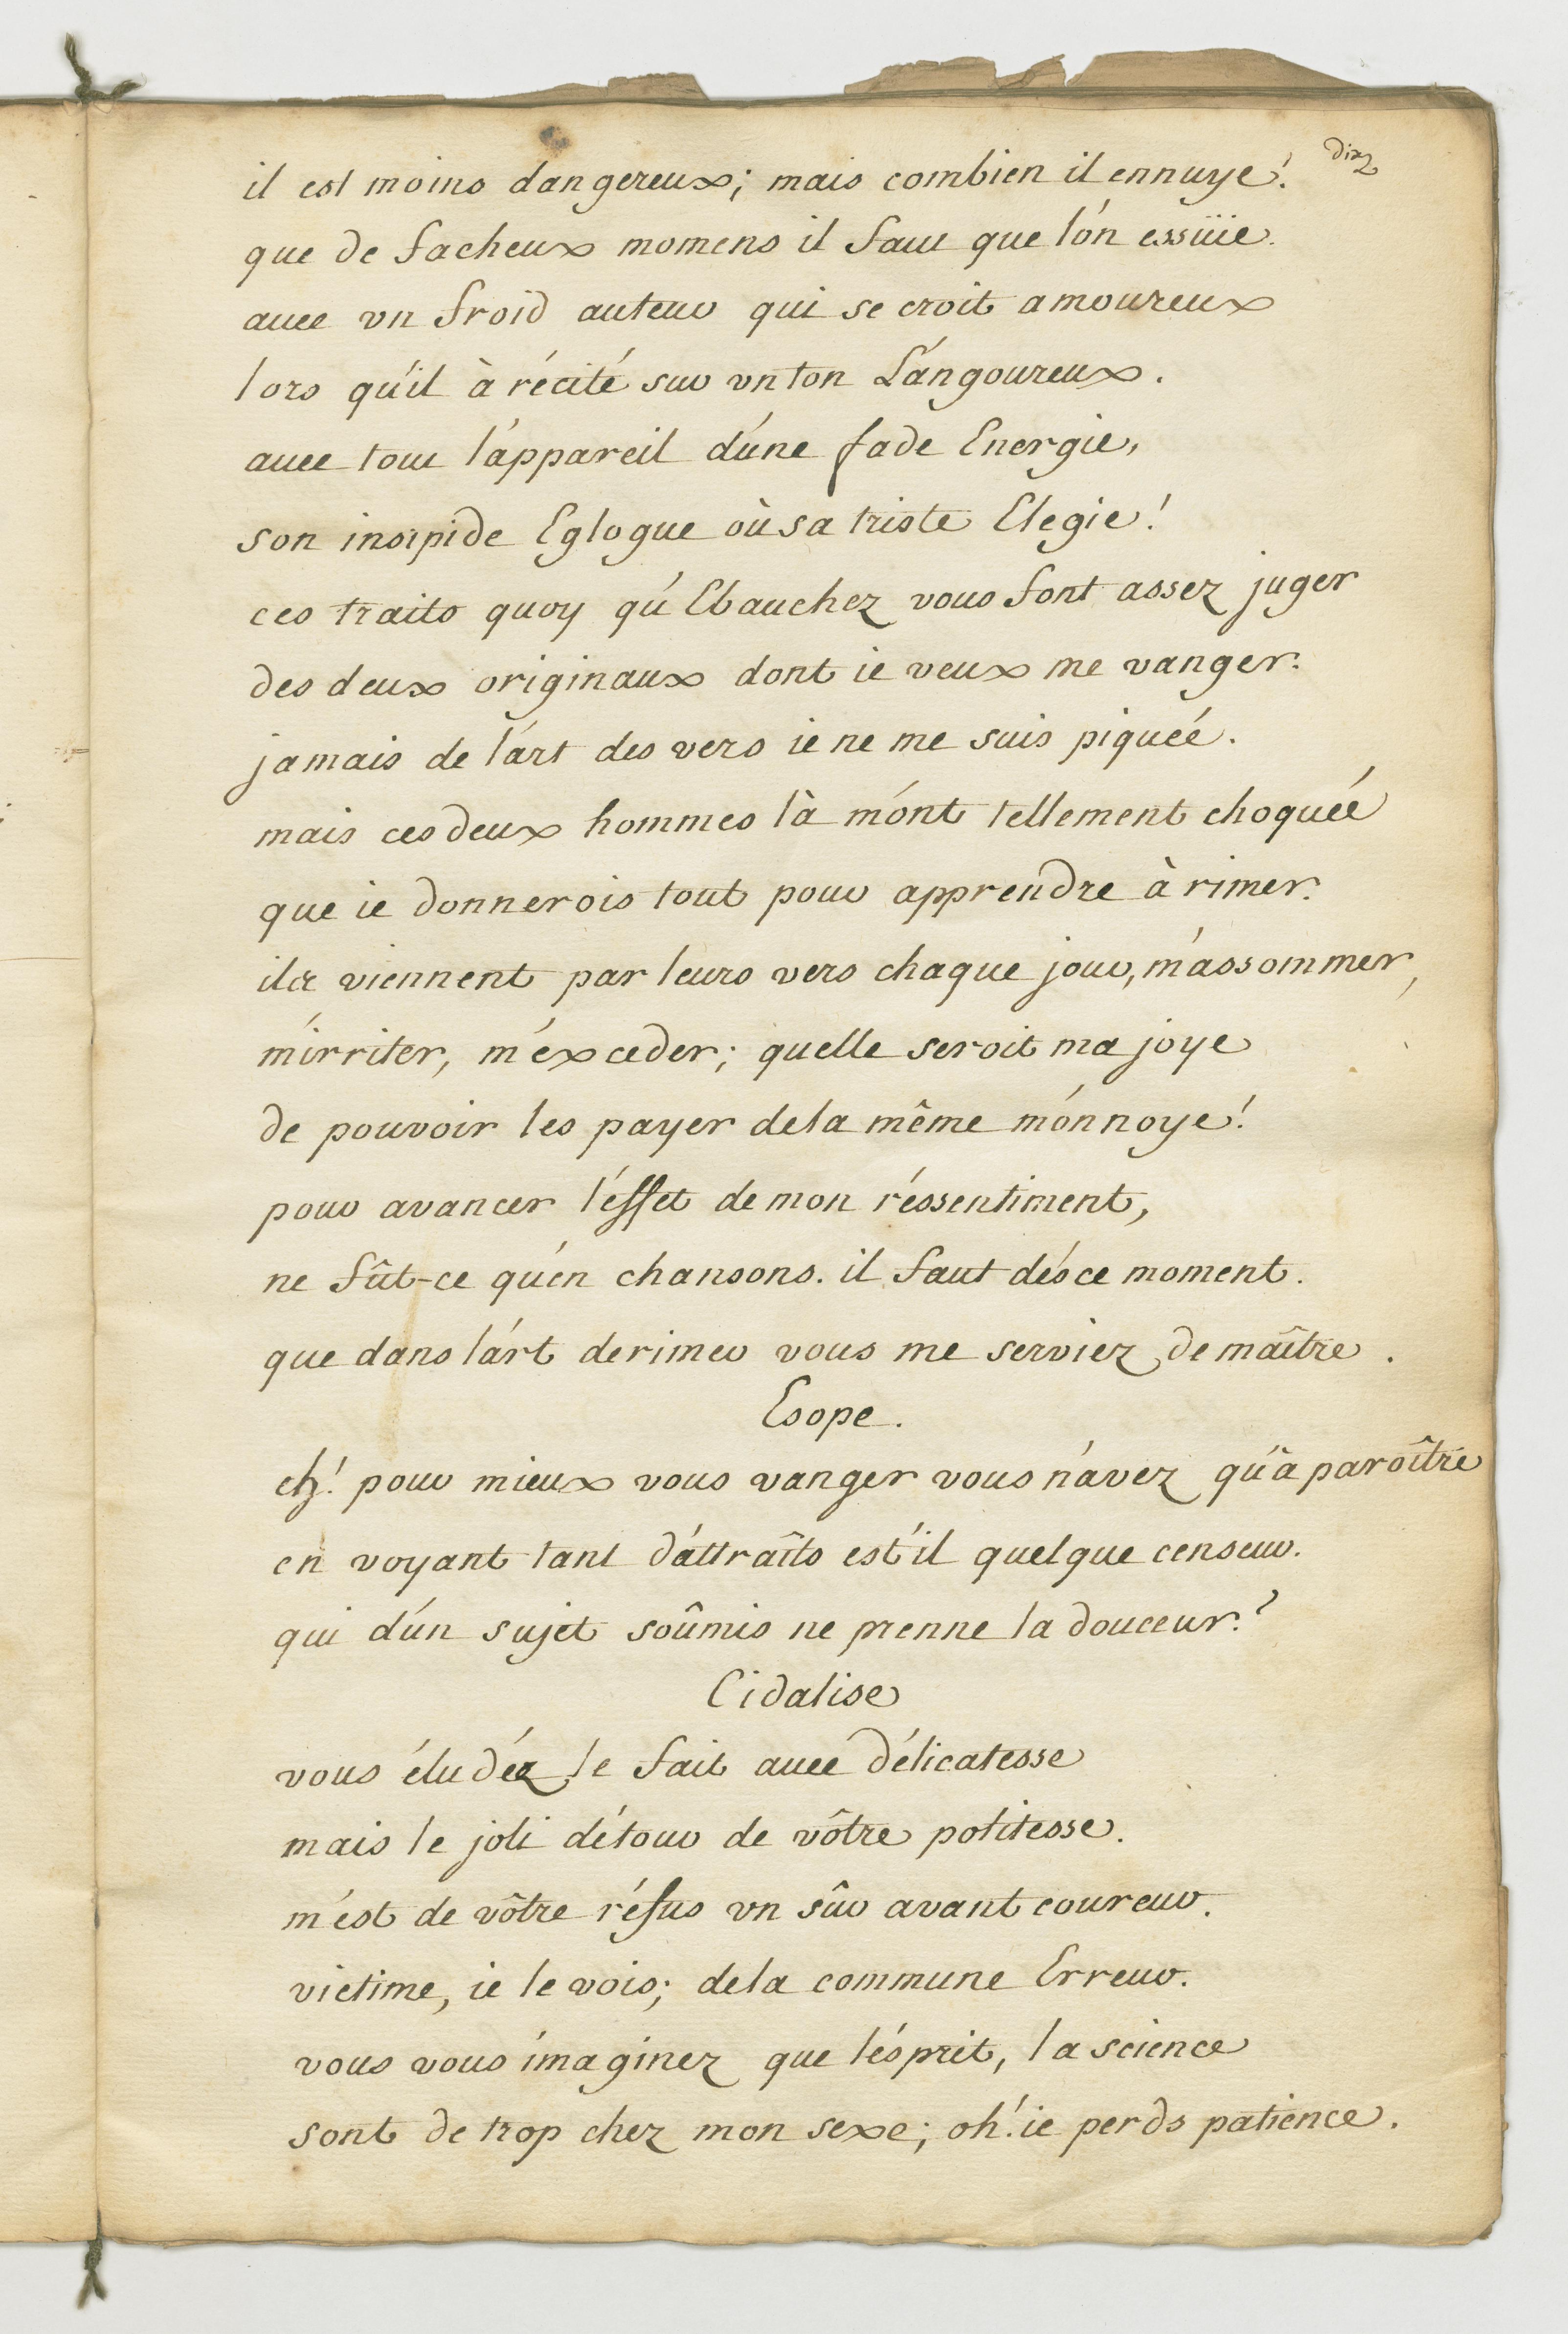 dix
il est moins dangereux; mais combien il ennuye!
que de facheux momens il faut que l'ón essüie.
auec vn froid auteur qui se croit amoureux
lors qu'il à récité sur vn ton Lángoureux.
auec tout l'áppareil d'úne fade Energie,
son insipide Eglogue où sa triste Elegie!
ces traits quoy qu'Ebauchez vous font assez juger
des deux originaux dont ie veux me vanger.
jamais de l'árt des vers ie ne me suis piquéé.
mais ces deux hommes là m'ónt tellement choquéé
que ie donnerois tout pour apprendre à rimer.
ils viennent par leurs vers chaque jour, m'ássommer,
m'írriter, m'éxceder; quelle seroit ma joye
de pouvoir les payer dela même mónnoye!
pour avancer l'éffet de mon réssentiment,
ne fût-ce qu'én chansons. il faut dés ce moment.
que dans l'árt derimer vous me serviez de maître.
Esope.
eh! pour mieux vous vanger vous n'ávez qu'à paroître
en voyant tant d'áttraîts est'il quelque censeur.
qui d'ún sujet soûmis ne prenne la douceur?
Cidalise
vous éludéz le fait auec délicatesse
mais le joli détour de vôtre politesse.
m'ést de vôtre réfus vn sûr avant coureur.
victime, ie le vois; dela commune Erreur.
vous vous ímaginez que l'ésprit, la science
sont de trop chez mon sexe; oh! ie perds patience.